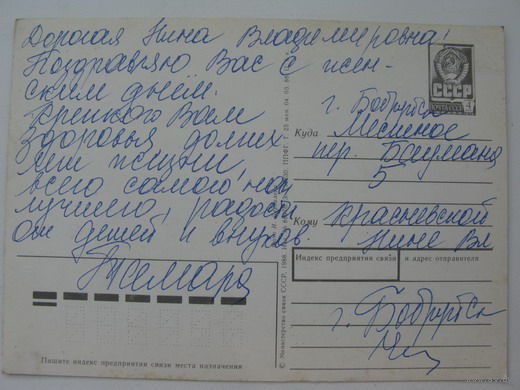 Дорогая Нина Владимировна!
Поздравляю Вас с жен-
ским днём.
Крепкого Вам
здоровья, долгих
лет жизни
всего самого наи
лучшего, радости
от детей и внуков.
Тамара
СССР
4
Куда
г. Бобруйск
Местное
пер. Баумана
5
Кому
Красневской
Нине Вл
Индекс предприятия связи и адрес отправителя
г. Бобруйск
Пишите индекс предприятия связи места назначения
© Министерство связи СССР. 1988.